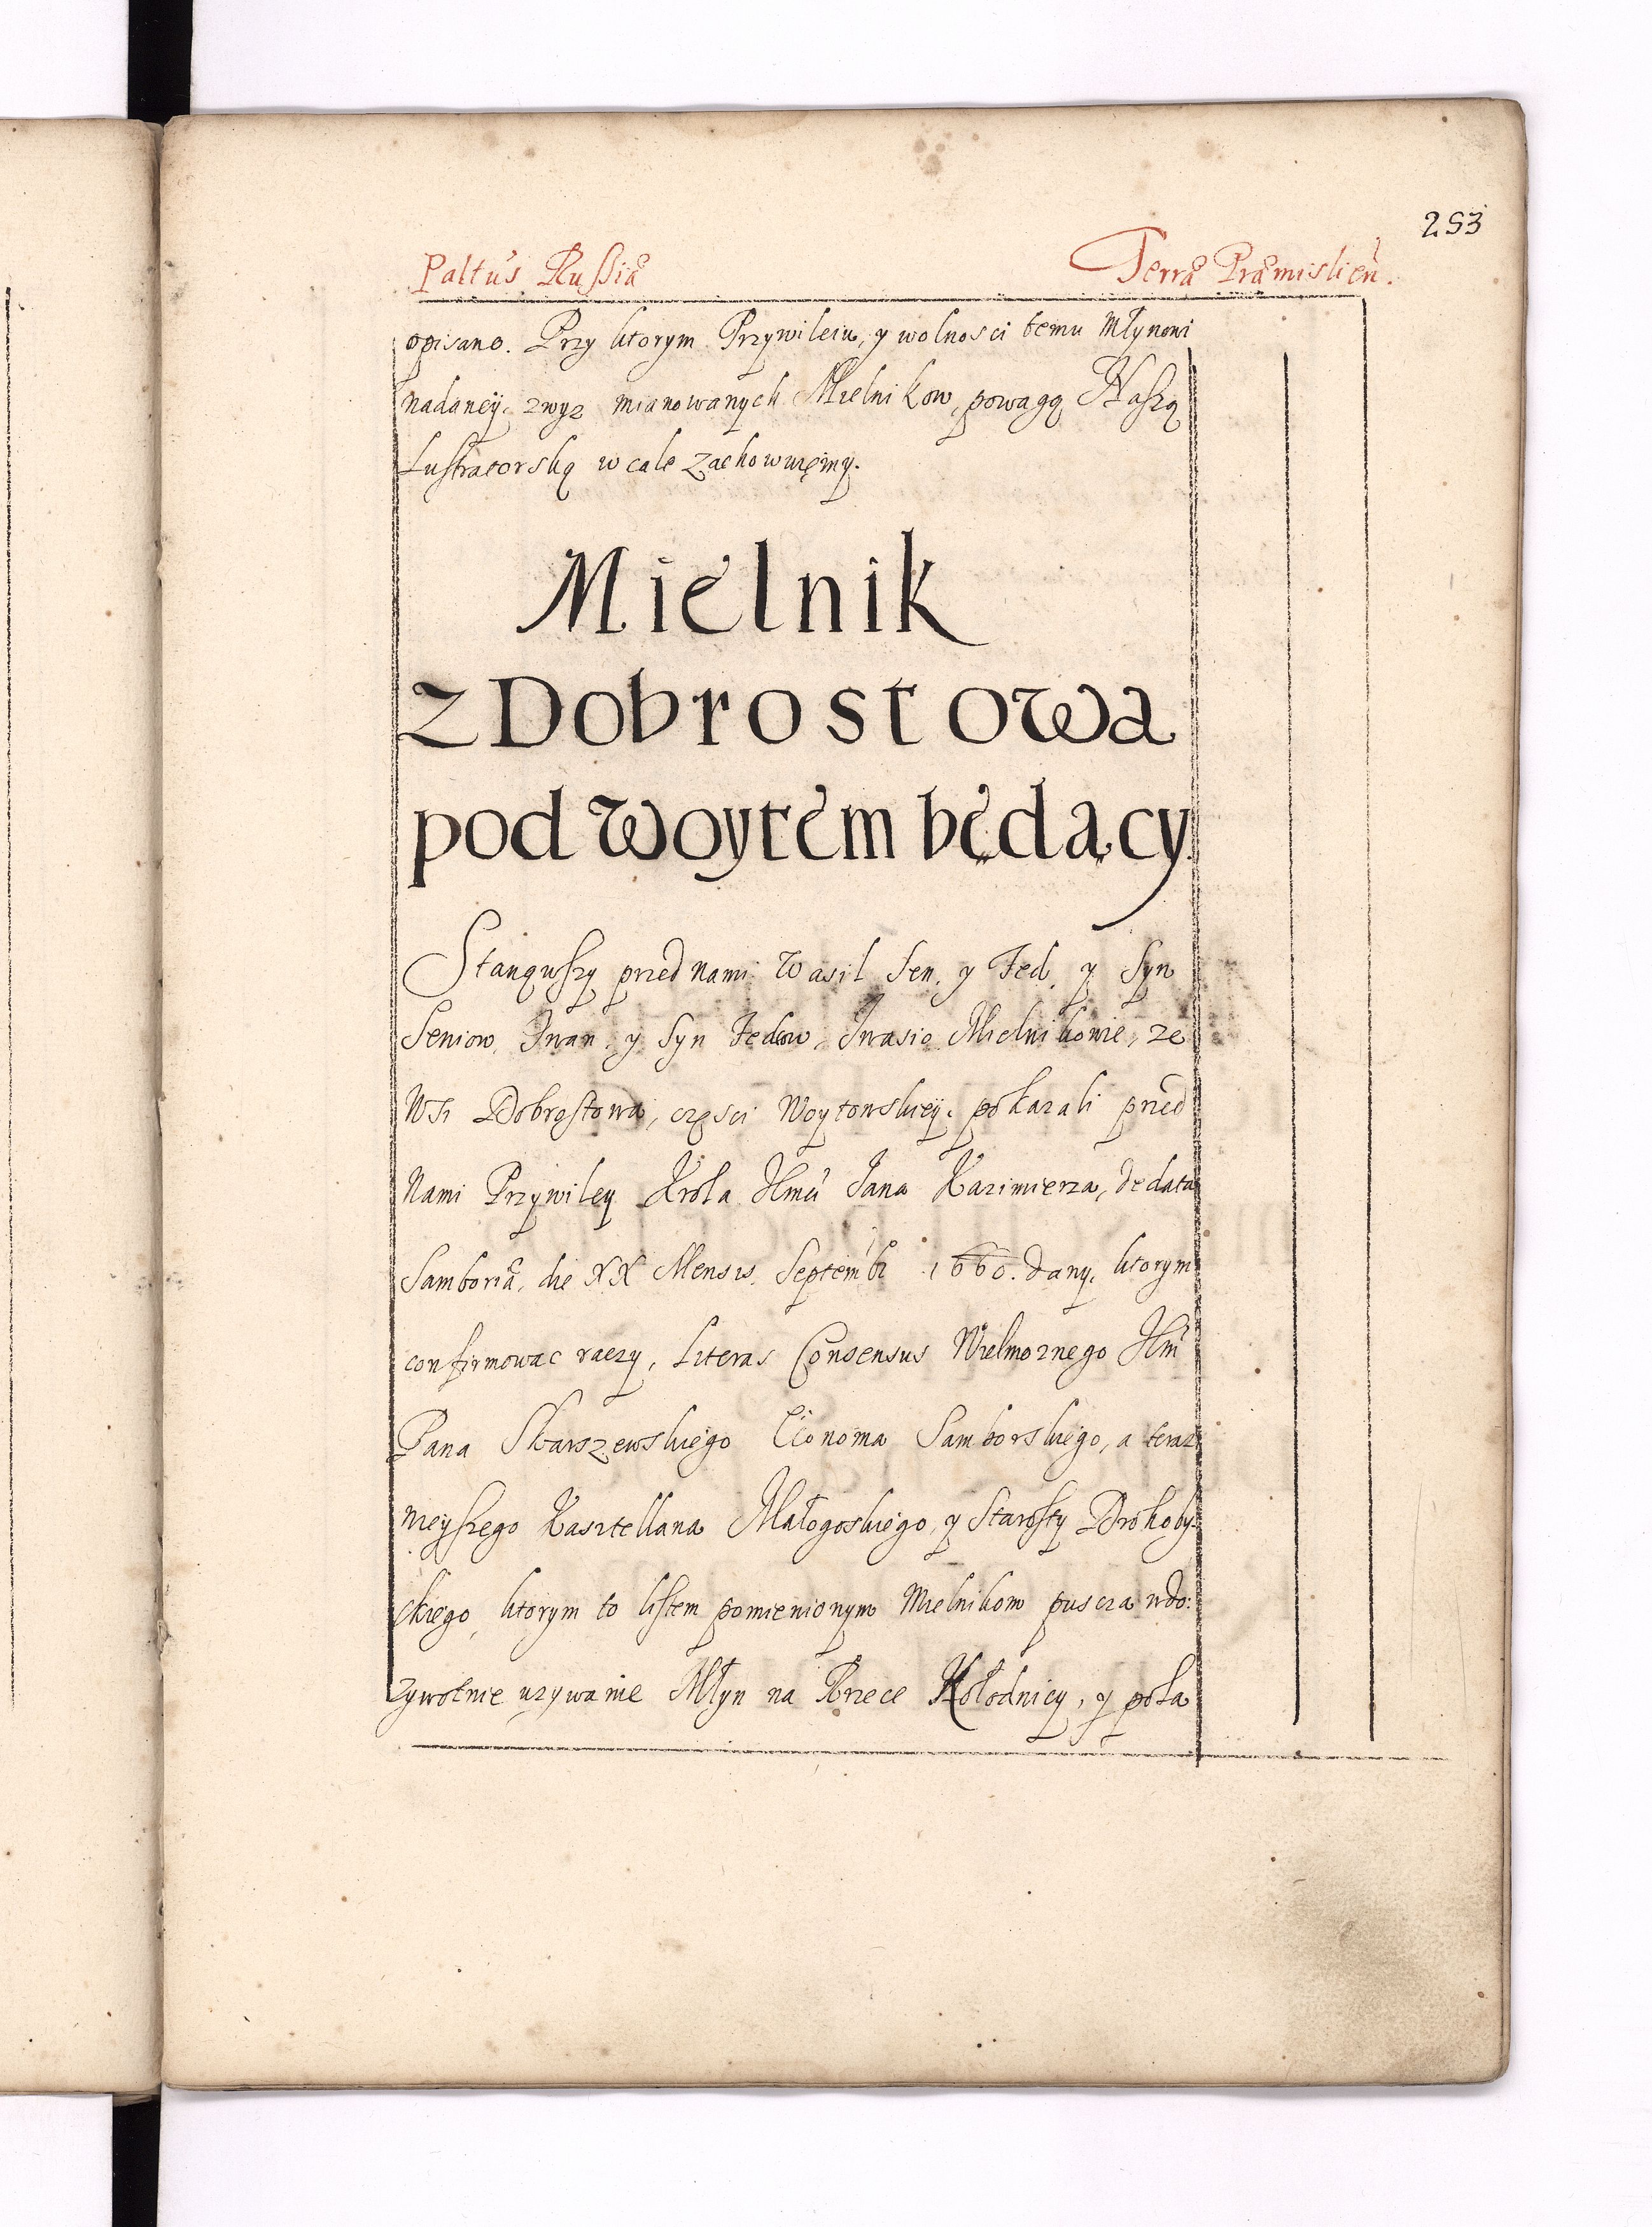 253
Paltus Russiæ Terræ Præmislien.
opisano. Przy ktorym Przywileiu, y wolnosci temu Młynowi
nadaneÿ. zwyz mianowanych Mielnikow, powagą Naszą
Lustratorską w cale zachowuięmy.
Mielnik
z Dobrostowa
pod Woytem będący.
Stanąwszy przed nami Wasil Sen. y Fed. y Syn
Seniow, Iwan, y Syn Fedow, Iwasio Mielnikowie, ze
Wsi Dobrostowa, częsci Woytowskieÿ. pokazali przed
Nami Przywiley Krola Jmci Jana Kazimierza, de data
Samboriæ, die XX Mensis Septembr 1660. dany. ktorym
confirmowac raczy, Literas Consensus Wielmoznego Jm
Pana Skarszewskiego Œconoma Samborskiego, a teraz
nieyszego Kasztellana Małogoskiego, y Starosty Drohoby-
ckiego, ktorym to listem pomienionym Mielnikom puscza wdo:
zywotnie uzywanie Młyn na Rzece Kołodnicy, y poła